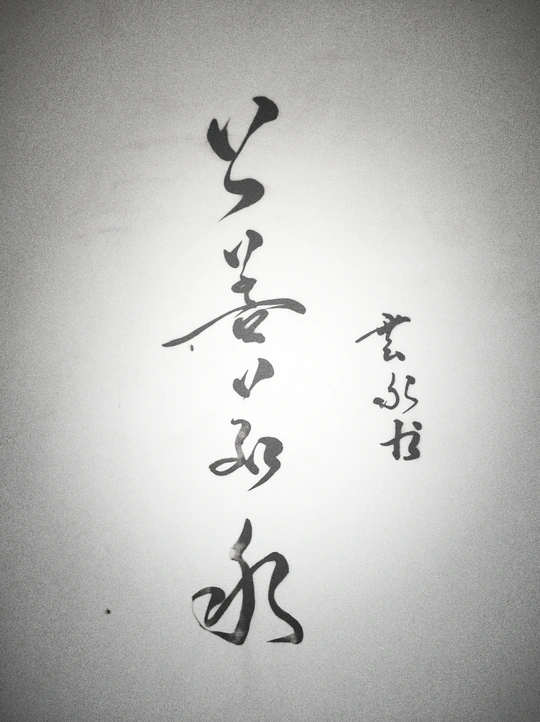 上善若水
雲水书